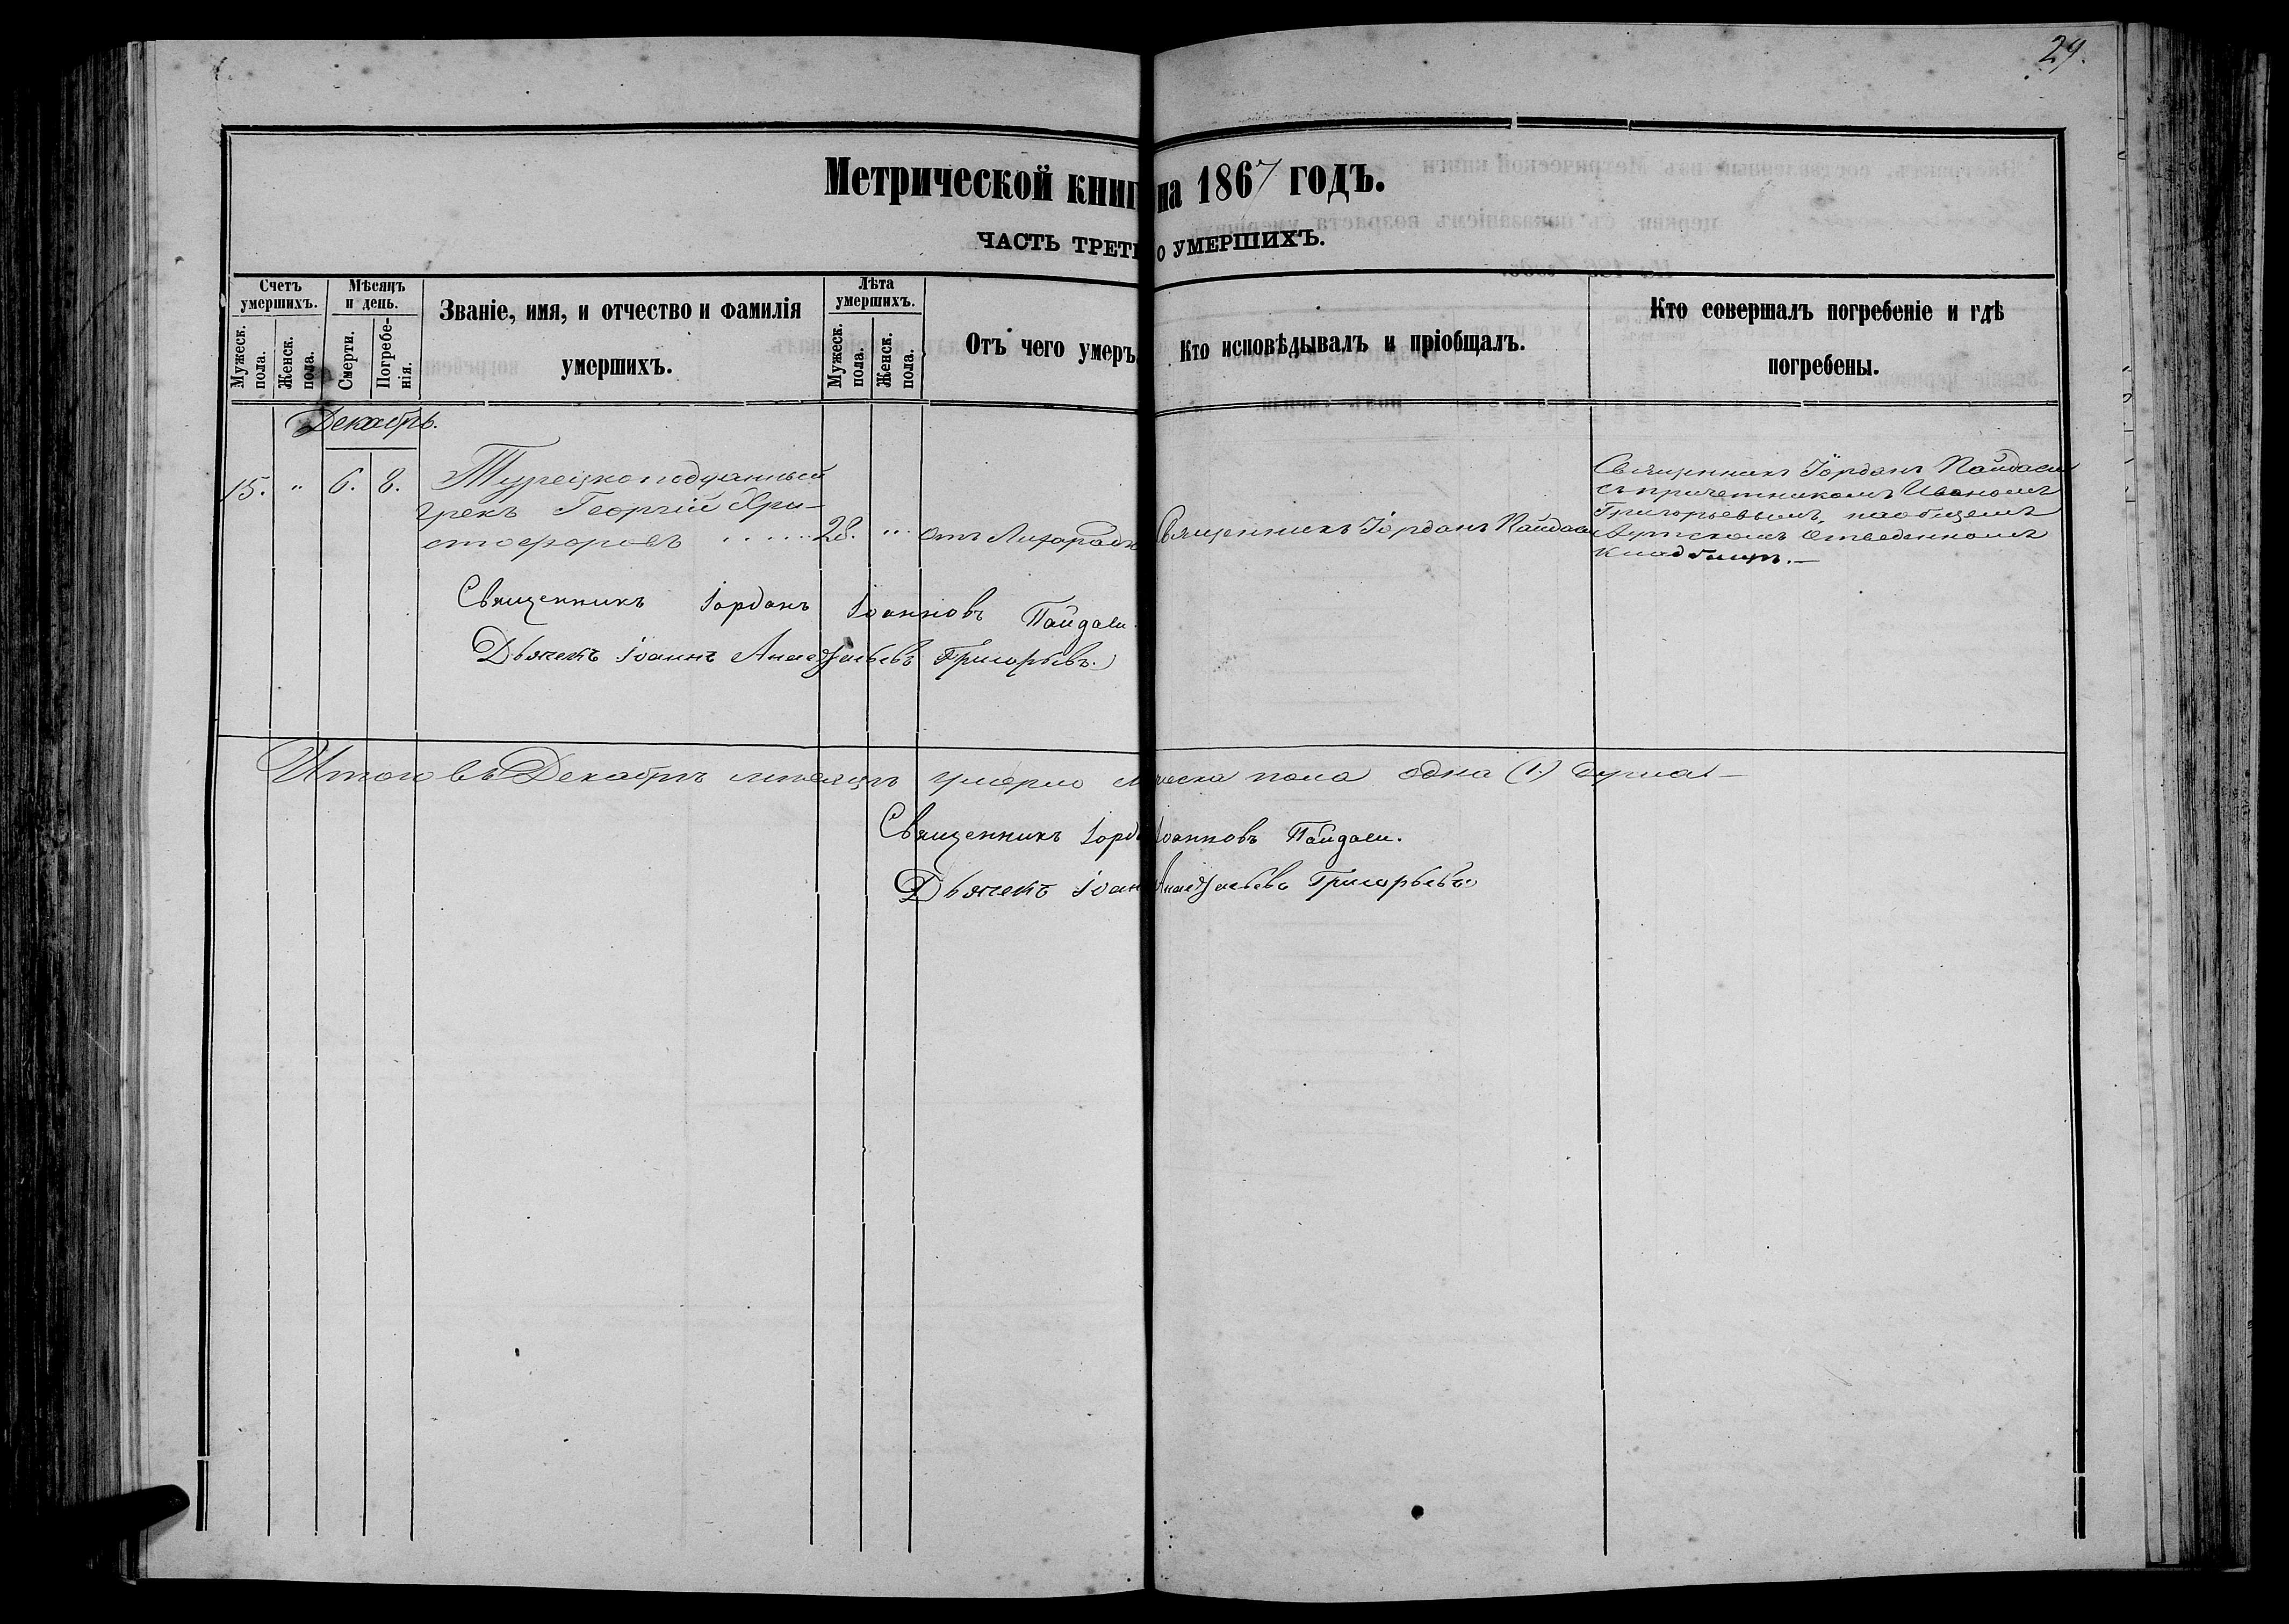 29.
Метрической книг на 1867 годъ.
ЧАСТЬ ТРЕТІ О УМЕРШИХЪ.
Счетъ умершихъ.
Мужеск. пола.
Женск. пола.
Мѣсяцъ и день.
Смерти.
Погребенія.
Званіе, имя, и отчество и фамилія
умершихъ.
Лѣта умершихъ.
Мужеск. пола.
Женск. пола.
Отъ чего умеръ
Кто исповѣдывалъ и пріобщалъ.
Кто совершалъ погребеніе и гдѣ
погребены.
Декабрь.
15. " 6. 8.
Турецкоподданный
грекъ Георгій Хри-
стофоровъ ...... 28. "
отъ
Священникъ Іорданъ Пайдаси
Священникъ Іорданъ Пайдаси
съ причетникомъ Иваномъ
Григорьевымъ, на общемъ
отведенномъ
кладбищѣ.—
Священникъ Іорданъ Іоанновъ Пайдаси.
Дьячекъ Іоаннъ Анастасьевъ Григорьевъ.
Итого въ Декабрѣ мѣсяцѣ умерло мужеска пола одна (1.) душа.—
Священникъ Іорд Іоанновъ Пайдаси.
Дьячекъ Іоан Анастасьевъ Григорьевъ.